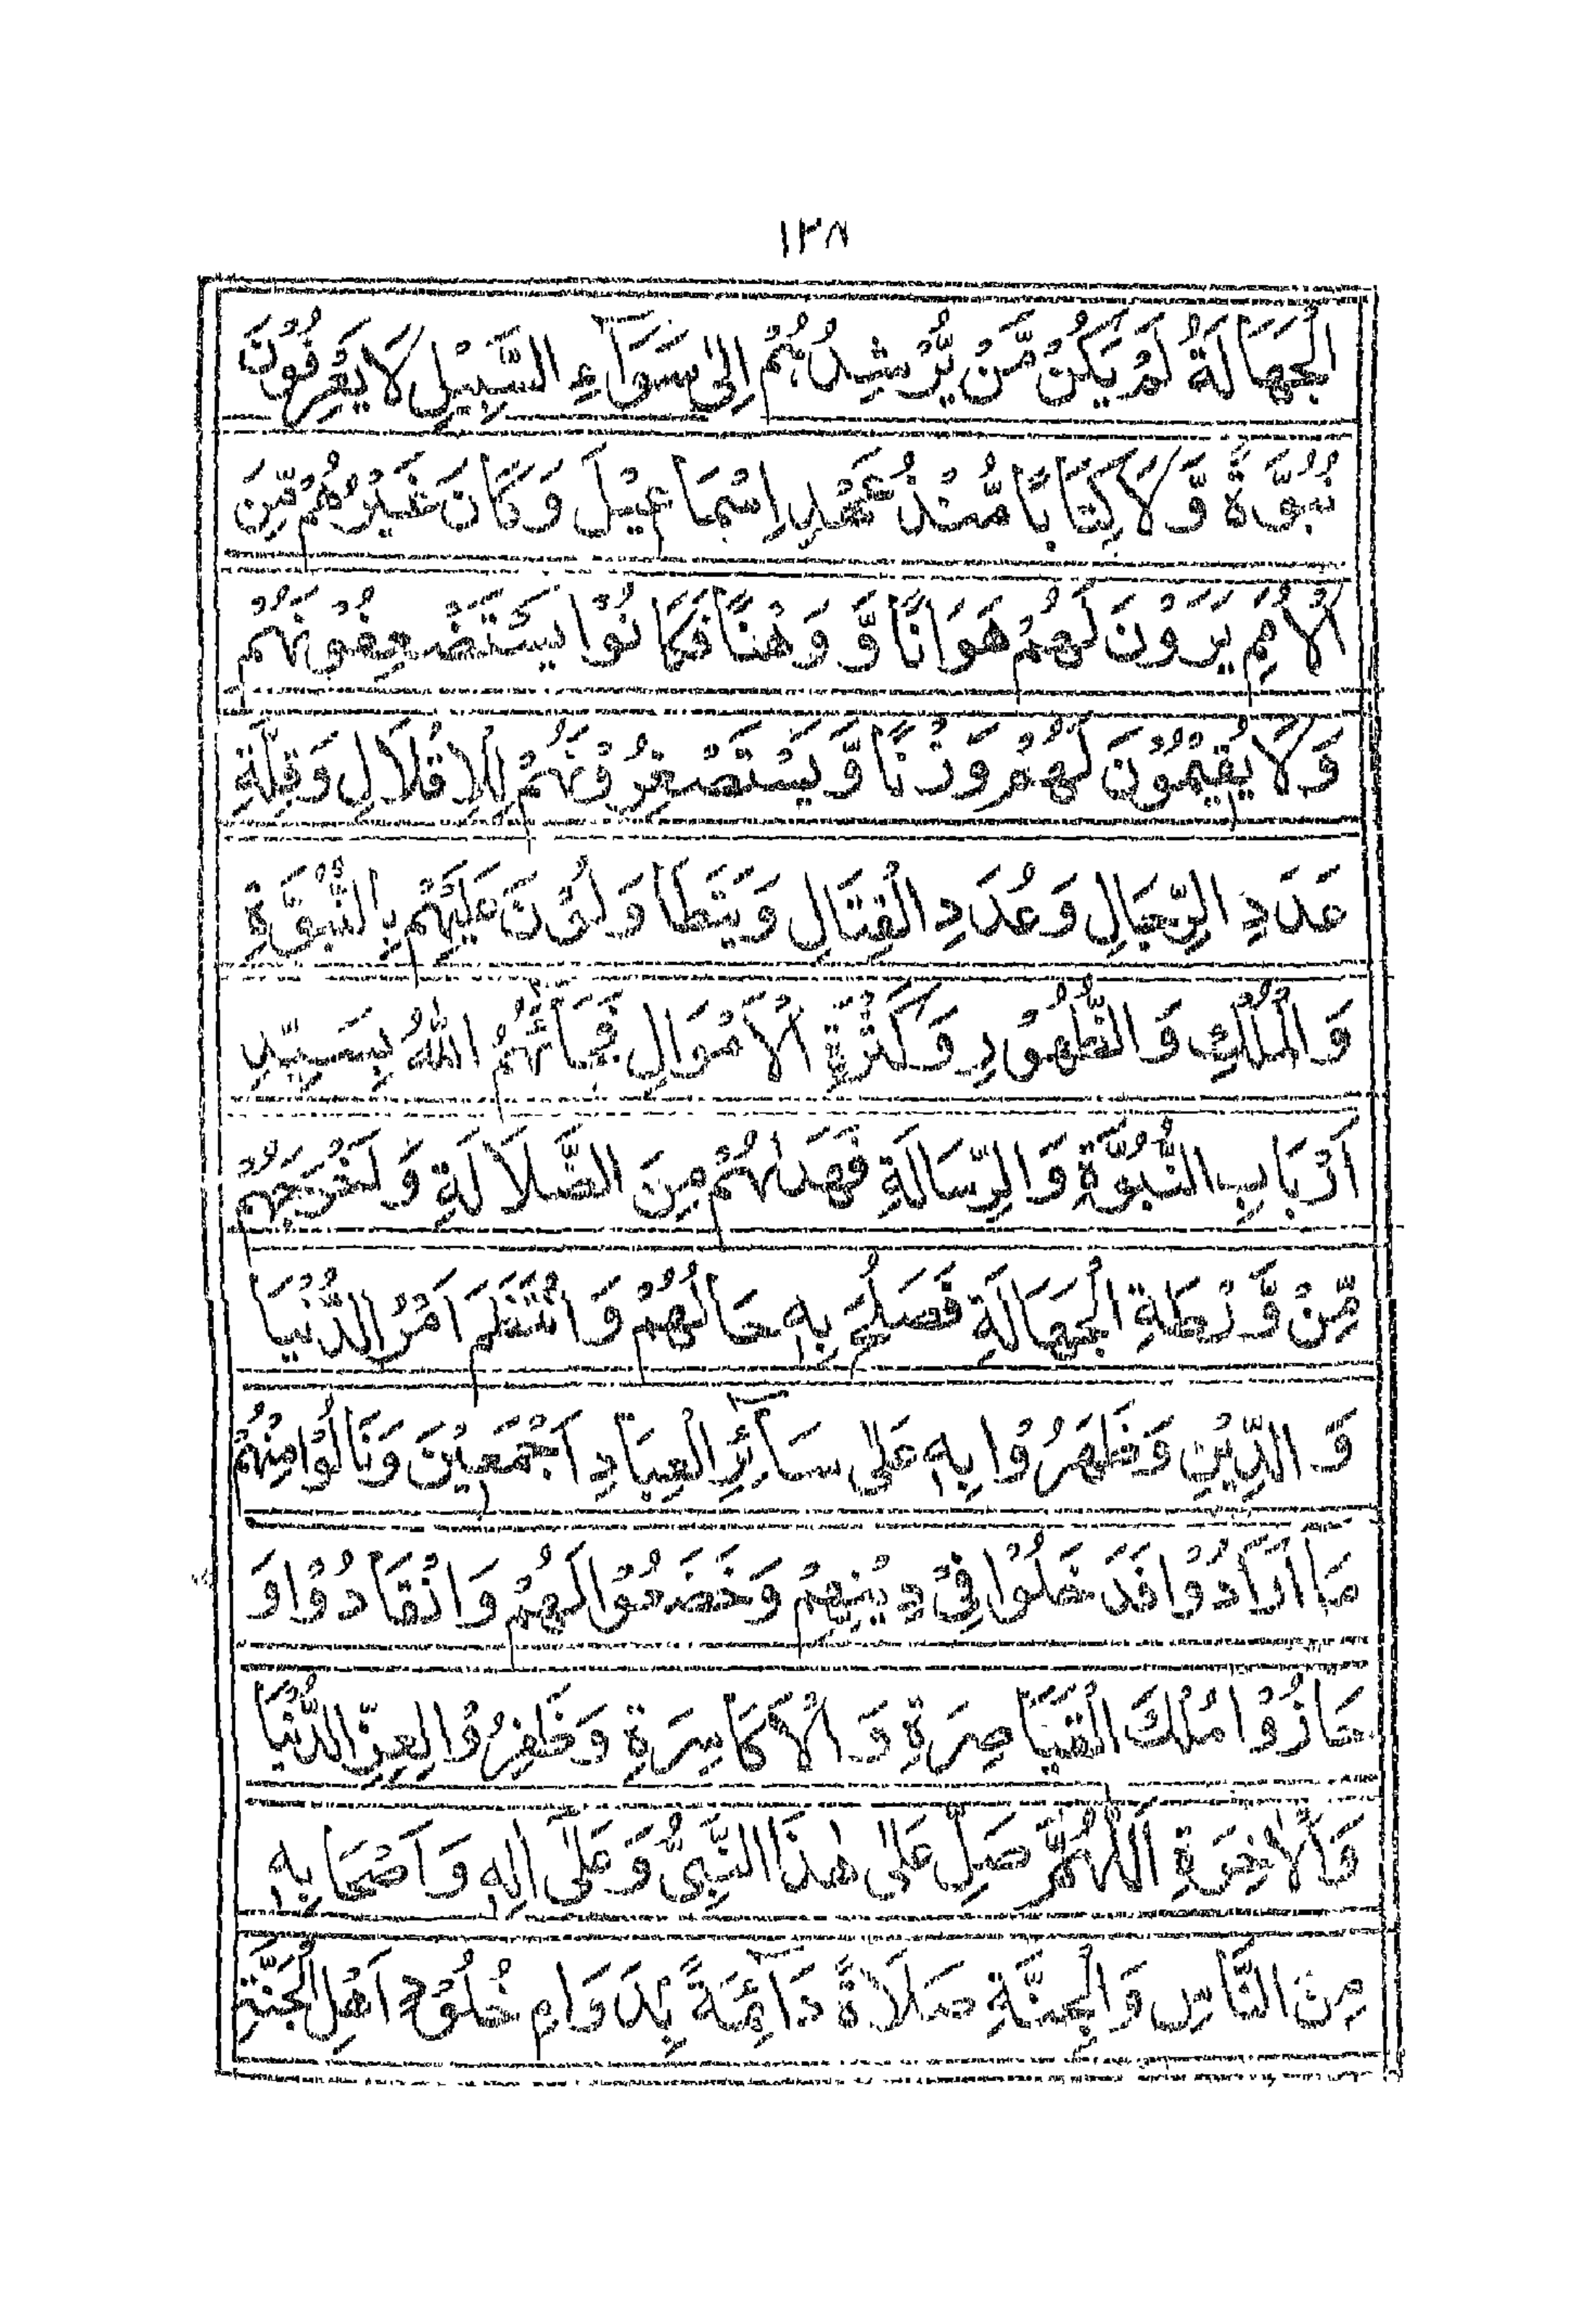 ١٢٨
الْجَهَالَةُ لَمْ يَكُنْ مَّنْ يُّرْشِدُهُمْ اِلٰى سَوَآءِ السَّبِيْلِ لَا يَعْرِفُوْنَ
نُبُوَّةً وَّلَا كِتَابًا مُّنْذُ عَهْدِ اِسْمَاعِيْلَ وَكَانَ غَيْرُهُمْ مِّنَ
الْاُمَمِ يَرَوْنَ لَهُمْ هَوَانًا وَّ وَهْنًا فَكَانُوْا يَسْتَضْعِفُوْنَهُمْ
وَلَا يُقِيْمُوْنَ لَهُمْ وَزْنًا وَّيَسْتَصْغِرُوْنَهُمْ لِلْاِقْلَالِ وَقِلَّةِ
عَدَدِ الرِّجَالِ وَعُدَدِ الْقِتَالِ وَيَتَطَاوَلُوْنَ عَلَيْهِمْ بِالنُّبُوَّةِ
وَالْمُلْكِ وَالظُّهُوْرِ وَكَثْرَةِ الْاَمْوَالِ فَجَآءَهُمُ اللّٰهُ بِسَيِّدِ
اَرْبَابِ النُّبُوَّةِ وَالرِّسَالَةِ فَهَدٰىهُمْ مِنَ الضَّلَالَةِ وَاَخْرَجَهُمْ
مِّنْ وَّرْطَةِ الْجَهَالَةِ فَصَلُحَ بِهٖ حَالُهُمْ وَانْتَظَمَ اَمْرُ الدُّنْيَا
وَالدِّيْنِ وَظَهَرُوْا بِهٖ عَلٰى سَآئِرِ الْعِبَادِ اَجْمَعِيْنَ وَنَالُوْا مِنْهُمْ
مَا اَرَادُوْا فَدَخَلُوْا فِيْ دِيْنِهِمْ وَخَضَعُوْا لَهُمْ وَانْقَادُوْا وَ
حَازُوْا مُلْكَ الْقَيَاصِرَةِ وَالْاَكَاسِرَةِ وَظَفِرُوْا لِعِزِّ الدُّنْيَا
وَالْاٰخِرَةِ اَللّٰهُمَّ صَلِّ عَلٰى هٰذَا النَّبِيِّ وَعَلٰٓى اٰلِهٖ وَاَصْحَابِهٖ
مِنَ النَّاسِ وَالْجِنَّةِ صَلَاةً دَآئِمَةً بِدَوَامِ خُلُوْدِ اَهْلِ الْجَنَّةِ